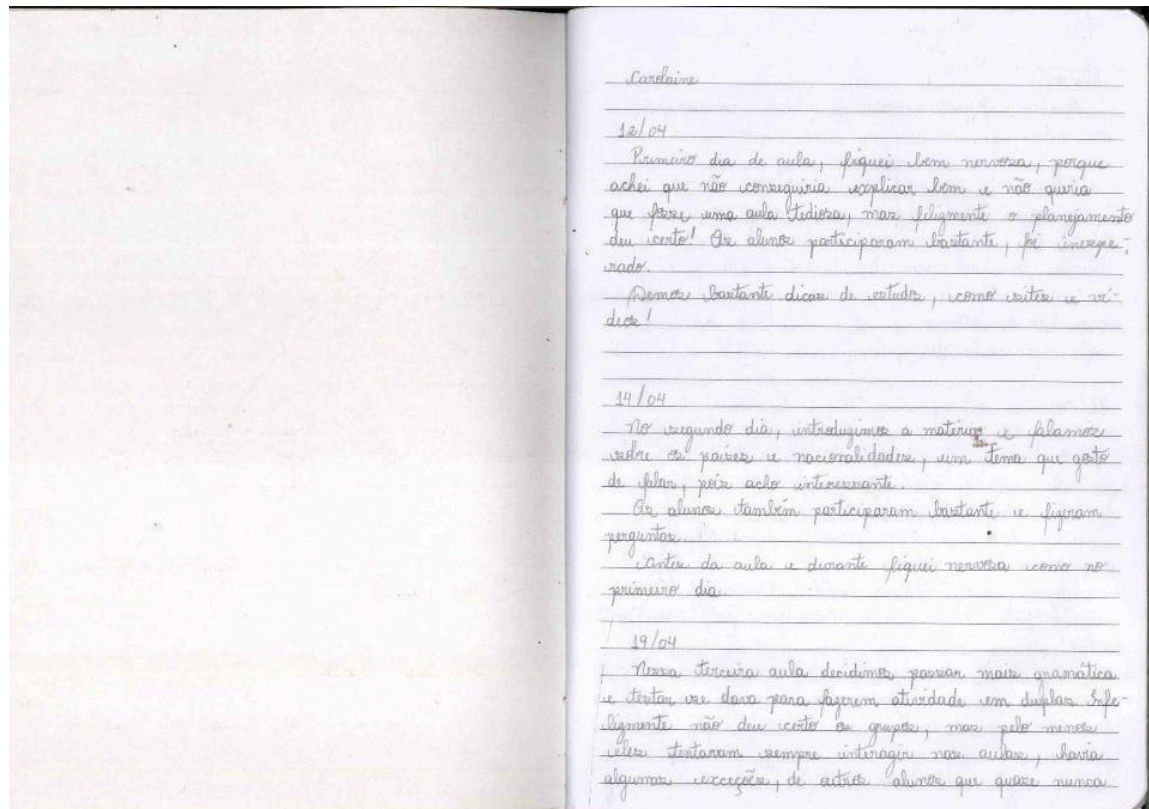 Carolaine
12/04
Primeiro dia de aula, fiquei bem nervosa, porque
achei que não conseguiria explicar bem e não queria
que fosse uma aula tediosa, mas felizmente o planejamento
deu certo! Os alunos participaram bastante, foi inespe-
rado.
Demos bastante dicas de estudos, como sites e ví-
deos!
14/04
No segundo dia, introduzimos a matéria e falamos
sobre os países e nacionalidades, um tema que gosto
de falar, pois acho interessante.
Os alunos também participaram bastante e fizeram
perguntas.
Antes da aula e durante fiquei nervosa como no
primeiro dia
19/04
Nossa terceira aula decidimos passar mais gramática
e testar se dava para fazerem atividade em duplas. Infe-
lizmente não deu certo os grupos, mas pelo menos
eles tentaram sempre interagir nas aulas, havia
algumas exceções, de outros alunos que quase nunca